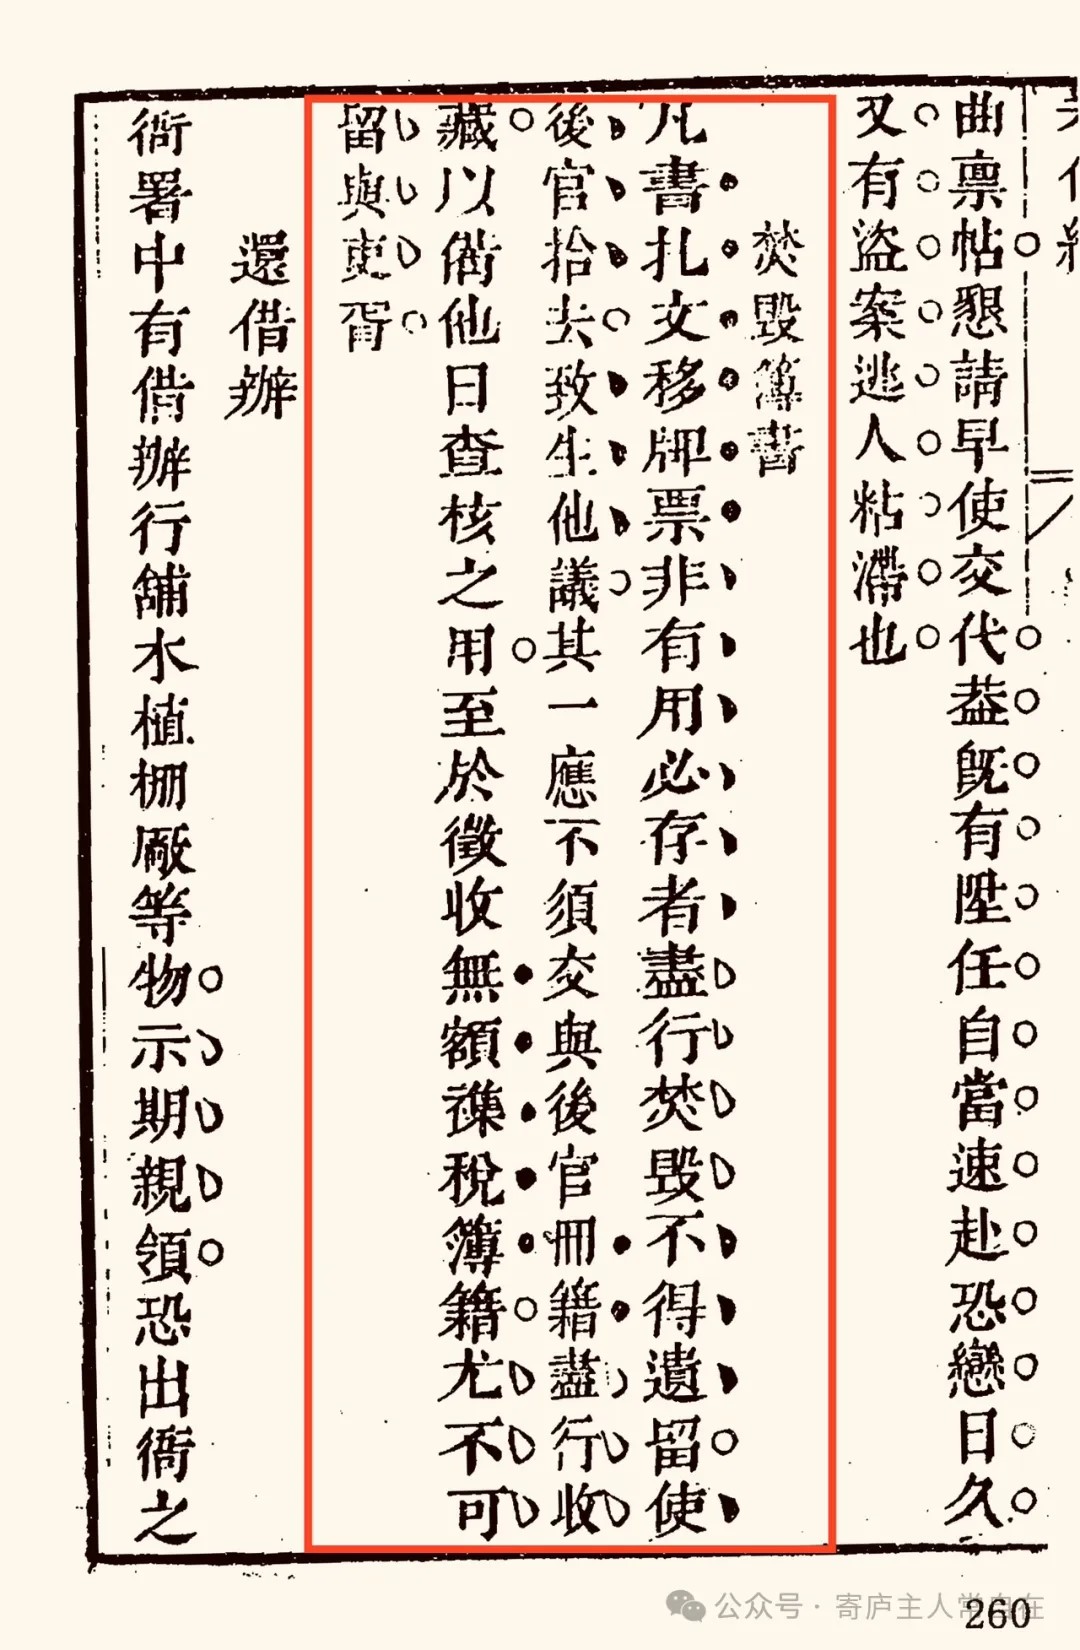 曲稟帖懇請早使交代葢旣有陞任自當速赴恐戀日久
又有盜案逃人粘滯也
焚毀簿書
凡書扎文移牌票非有用必存者盡行焚毀不得遺留使
後官拾去致生他議其一應不須交與後官冊籍盡行收
藏以備他日查核之用至於徵收無額襍稅簿籍尤不可
留與吏胥
還借辦
衙署中有借辦行舖水植棚廠等物示期親領恐出衙之
公众号·寄庐主人常自在
260